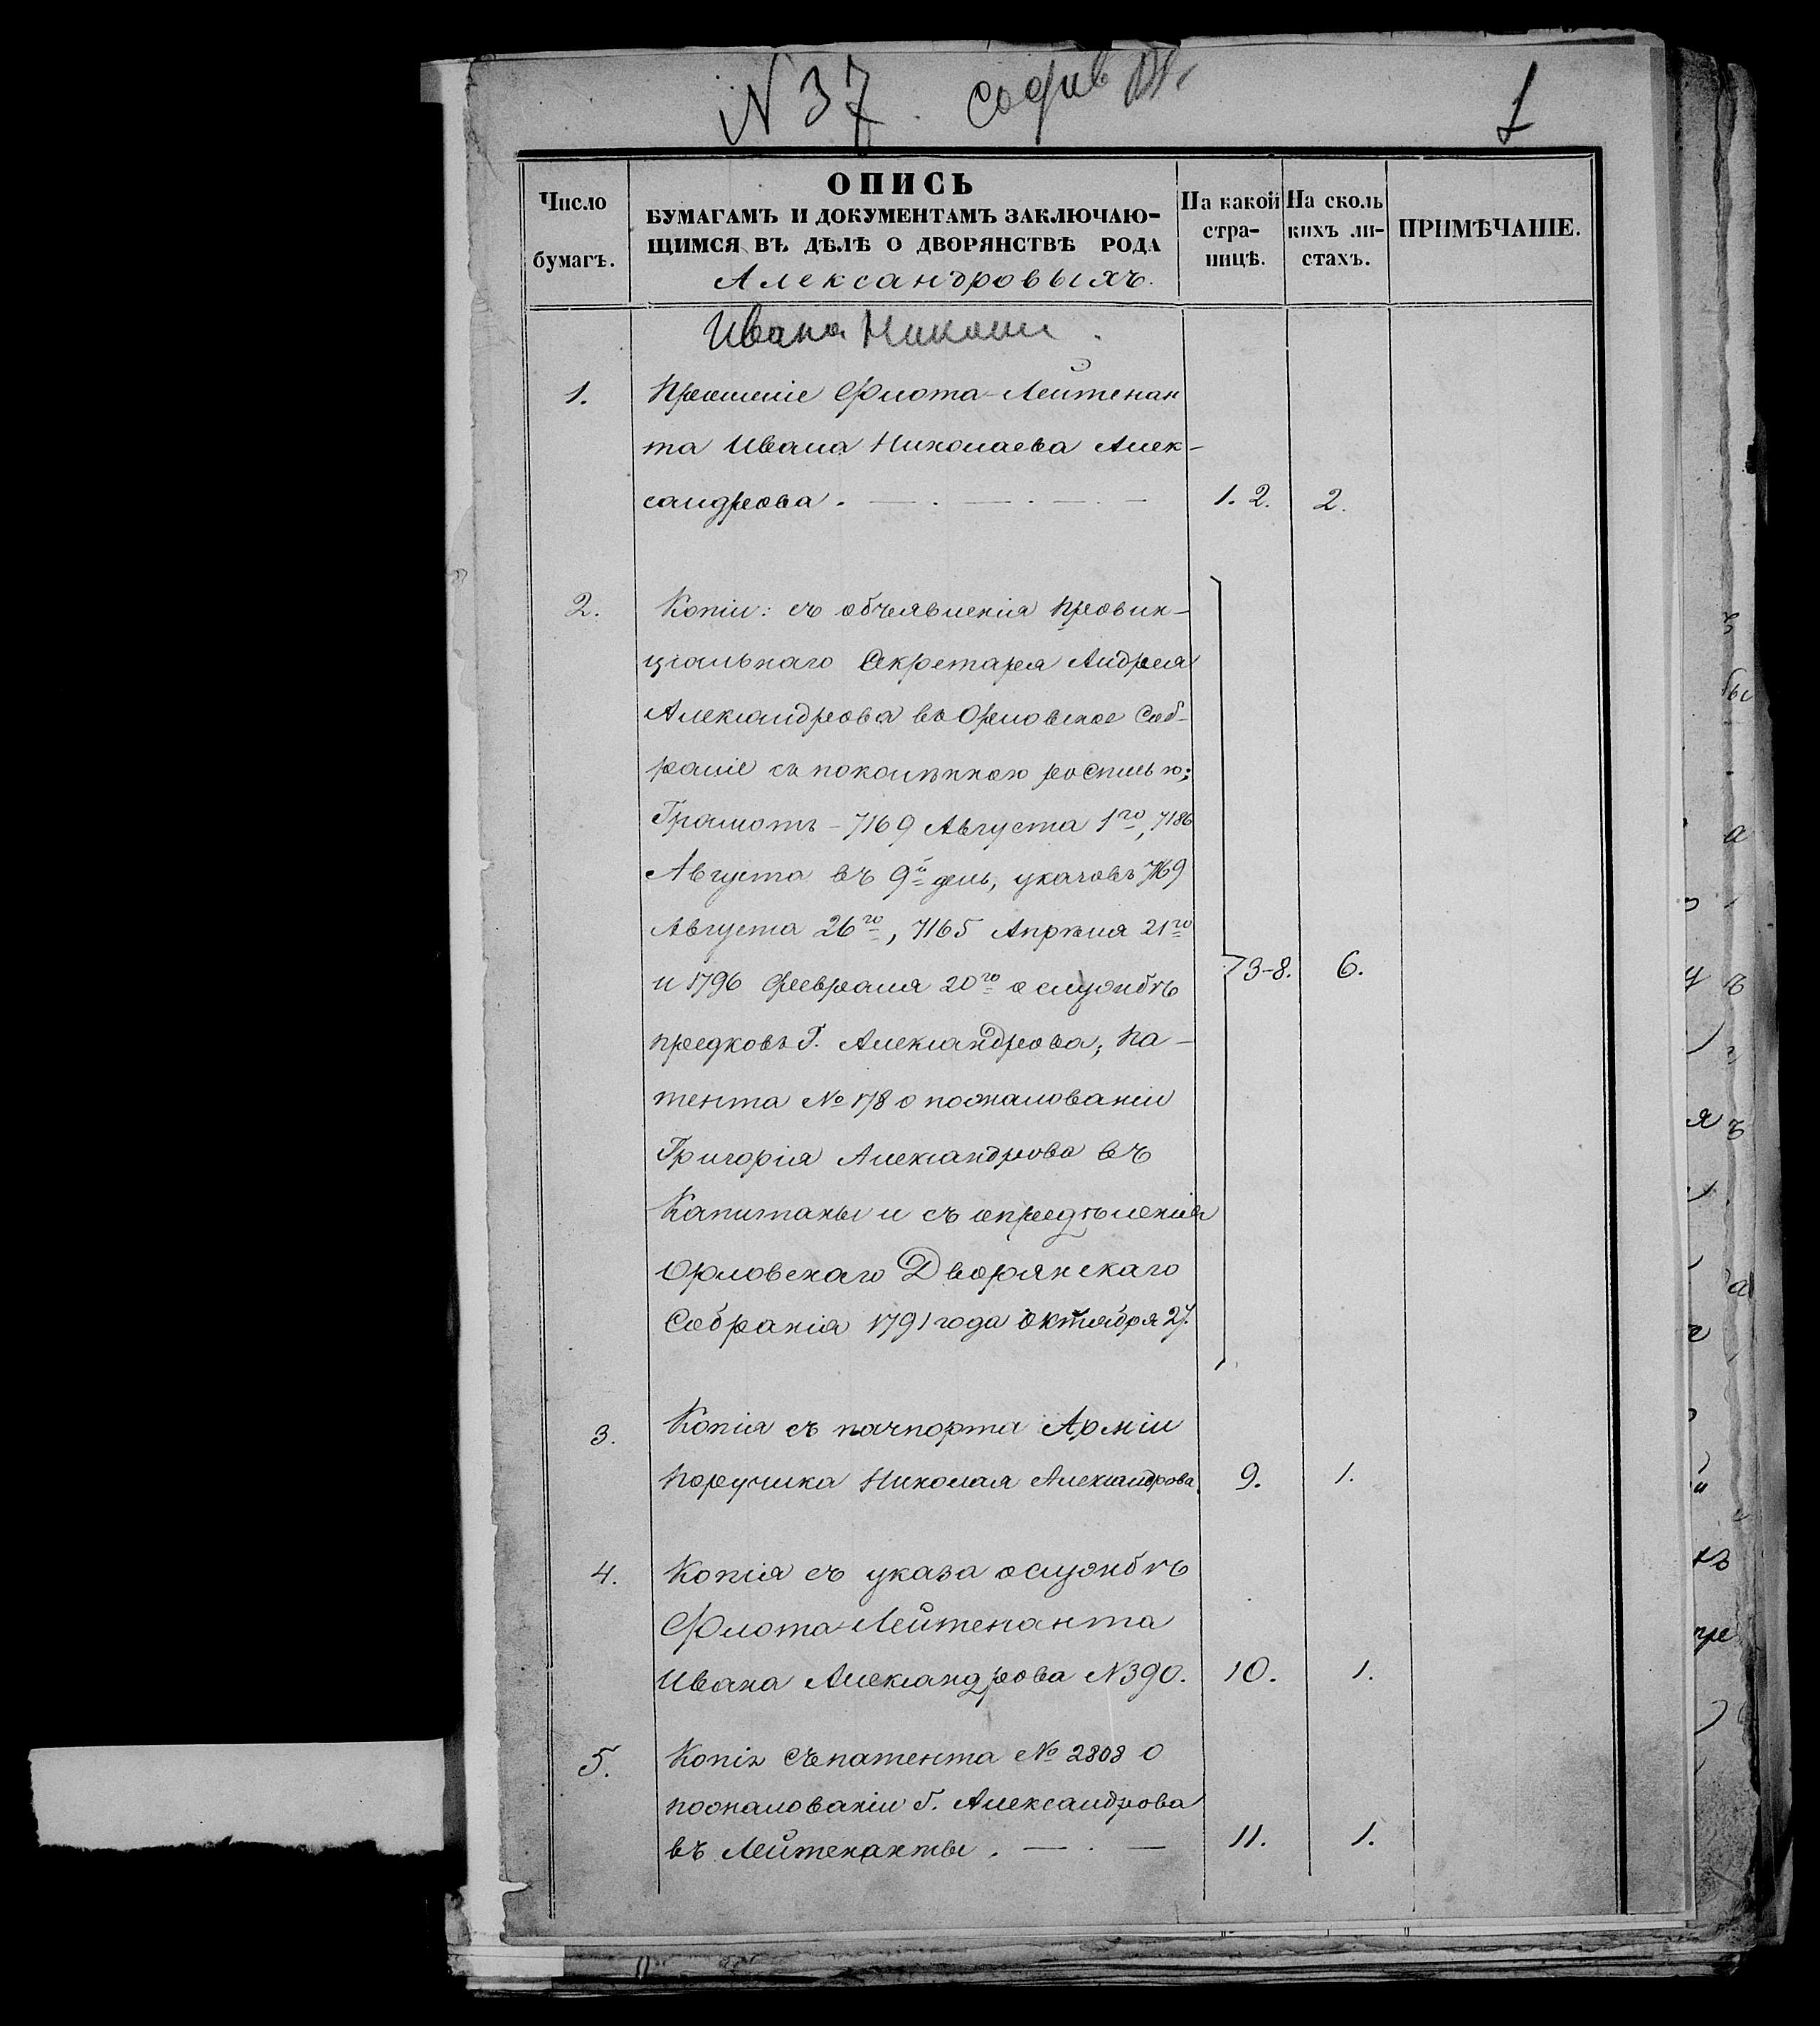 N 37.
1
Число бумагъ.
ОПИСЬ
БУМАГАМЪ И ДОКУМЕНТАМЪ ЗАКЛЮЧАЮ-
ЩИМСЯ ВЪ ДѢЛѢ О ДВОРЯНСТВѢ РОДА
Александровыхъ.
На какой
стра-
ницѣ.
На сколь
кихъ ли-
стахъ.
ПРИМѢЧАНІЕ.
Ивана
1. Прошеніе Флота-Лейтенан
та Ивана Николаева Алек-
сандрова. — . — . — . — 1. 2. 2.
2. Копіи: съ объявленія Провин-
ціальнаго Секретаря Андрея
Александрова въ Орловское Соб-
раніе съ поколѣнною росписью;
Грамотъ - 7169 Августа 1го, 7186
Августа въ 9й день, указовъ 7169
Августа 26го, 7165 Апрѣля 21го
и 1796 Февраля 20го о службѣ 3-8. 6.
предковъ Г. Александрова; Па-
тента № 178 о пожалованіи
Григорія Александрова въ
Капитаны и съ опредѣленія
Орловскаго Дворянскаго
Собранія 1791 года Октября 27.
3. Копія съ пачпорта Арміи
Поручика Николая Александрова. 9. 1.
4. Копія съ указа о службѣ
Флота-Лейтенанта
Ивана Александрова N 390. 10. 1.
5. Копія съ патента № 2808 о
пожалованіи Г. Александрова
въ Лейтенанты. — . — 11. 1.